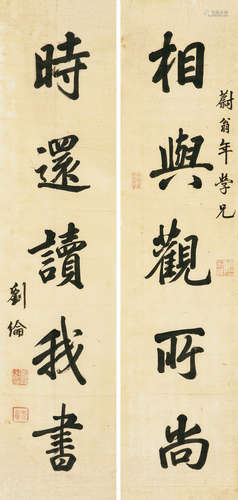 蔚翁年學兄
相與觀所尚
時還讀我書
劉倫